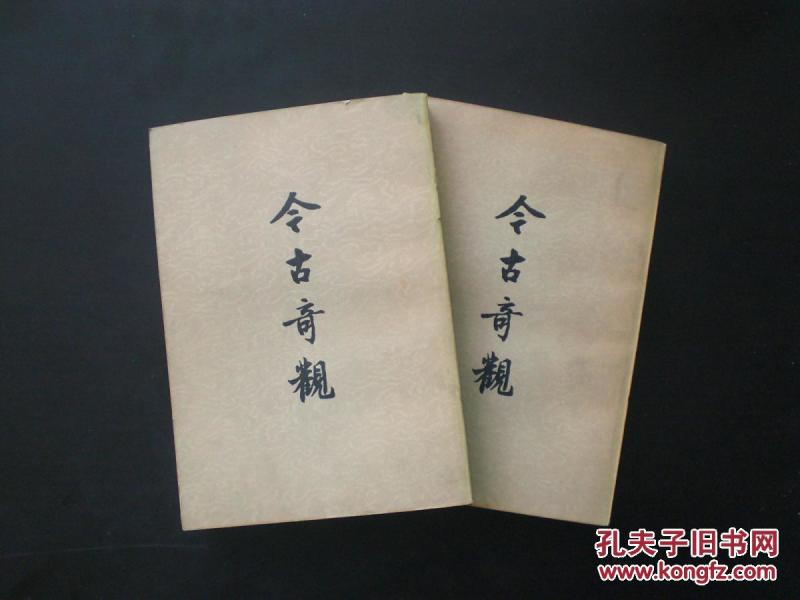 今古奇觀
今古奇觀
孔夫子旧书网
www.kongfz.com